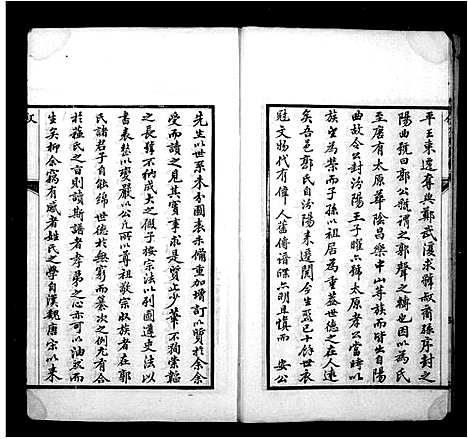 平王東遷奪與鄭武復求虢叔裔孫序封之
陽曲號曰郭公虢謂之郭聲之轉也因以為氏
至唐有太原華陰昌樂中山等族而皆出自陽
曲故令公封汾陽王子曜亦輯太原孝公當時以
族望為榮而子孫以祖居為重蓋世德之在人遠
矣吾邑郭氏自汾陽來遷閱今生齒已十餘世衣
冠文物代有偉人舊傳譜牒亦明且慎而 安公
先生以世系未分圖表未備重加增訂以質於余余
受而讀之見其實事求是質止少華不徇崇韜
之長韓不納成大之假子按宗法以列圖遵史法以
書表慜以變嚴以公凡所以尊祖敬宗收族者在郭
氏諸君子自能綿世德於無窮而纂次之例尤有合
於蘇氏之言則讀斯譜者孝弟之心也可以油然而
生矣抑余竊有感者姓氏之學自漢魏唐宋以來